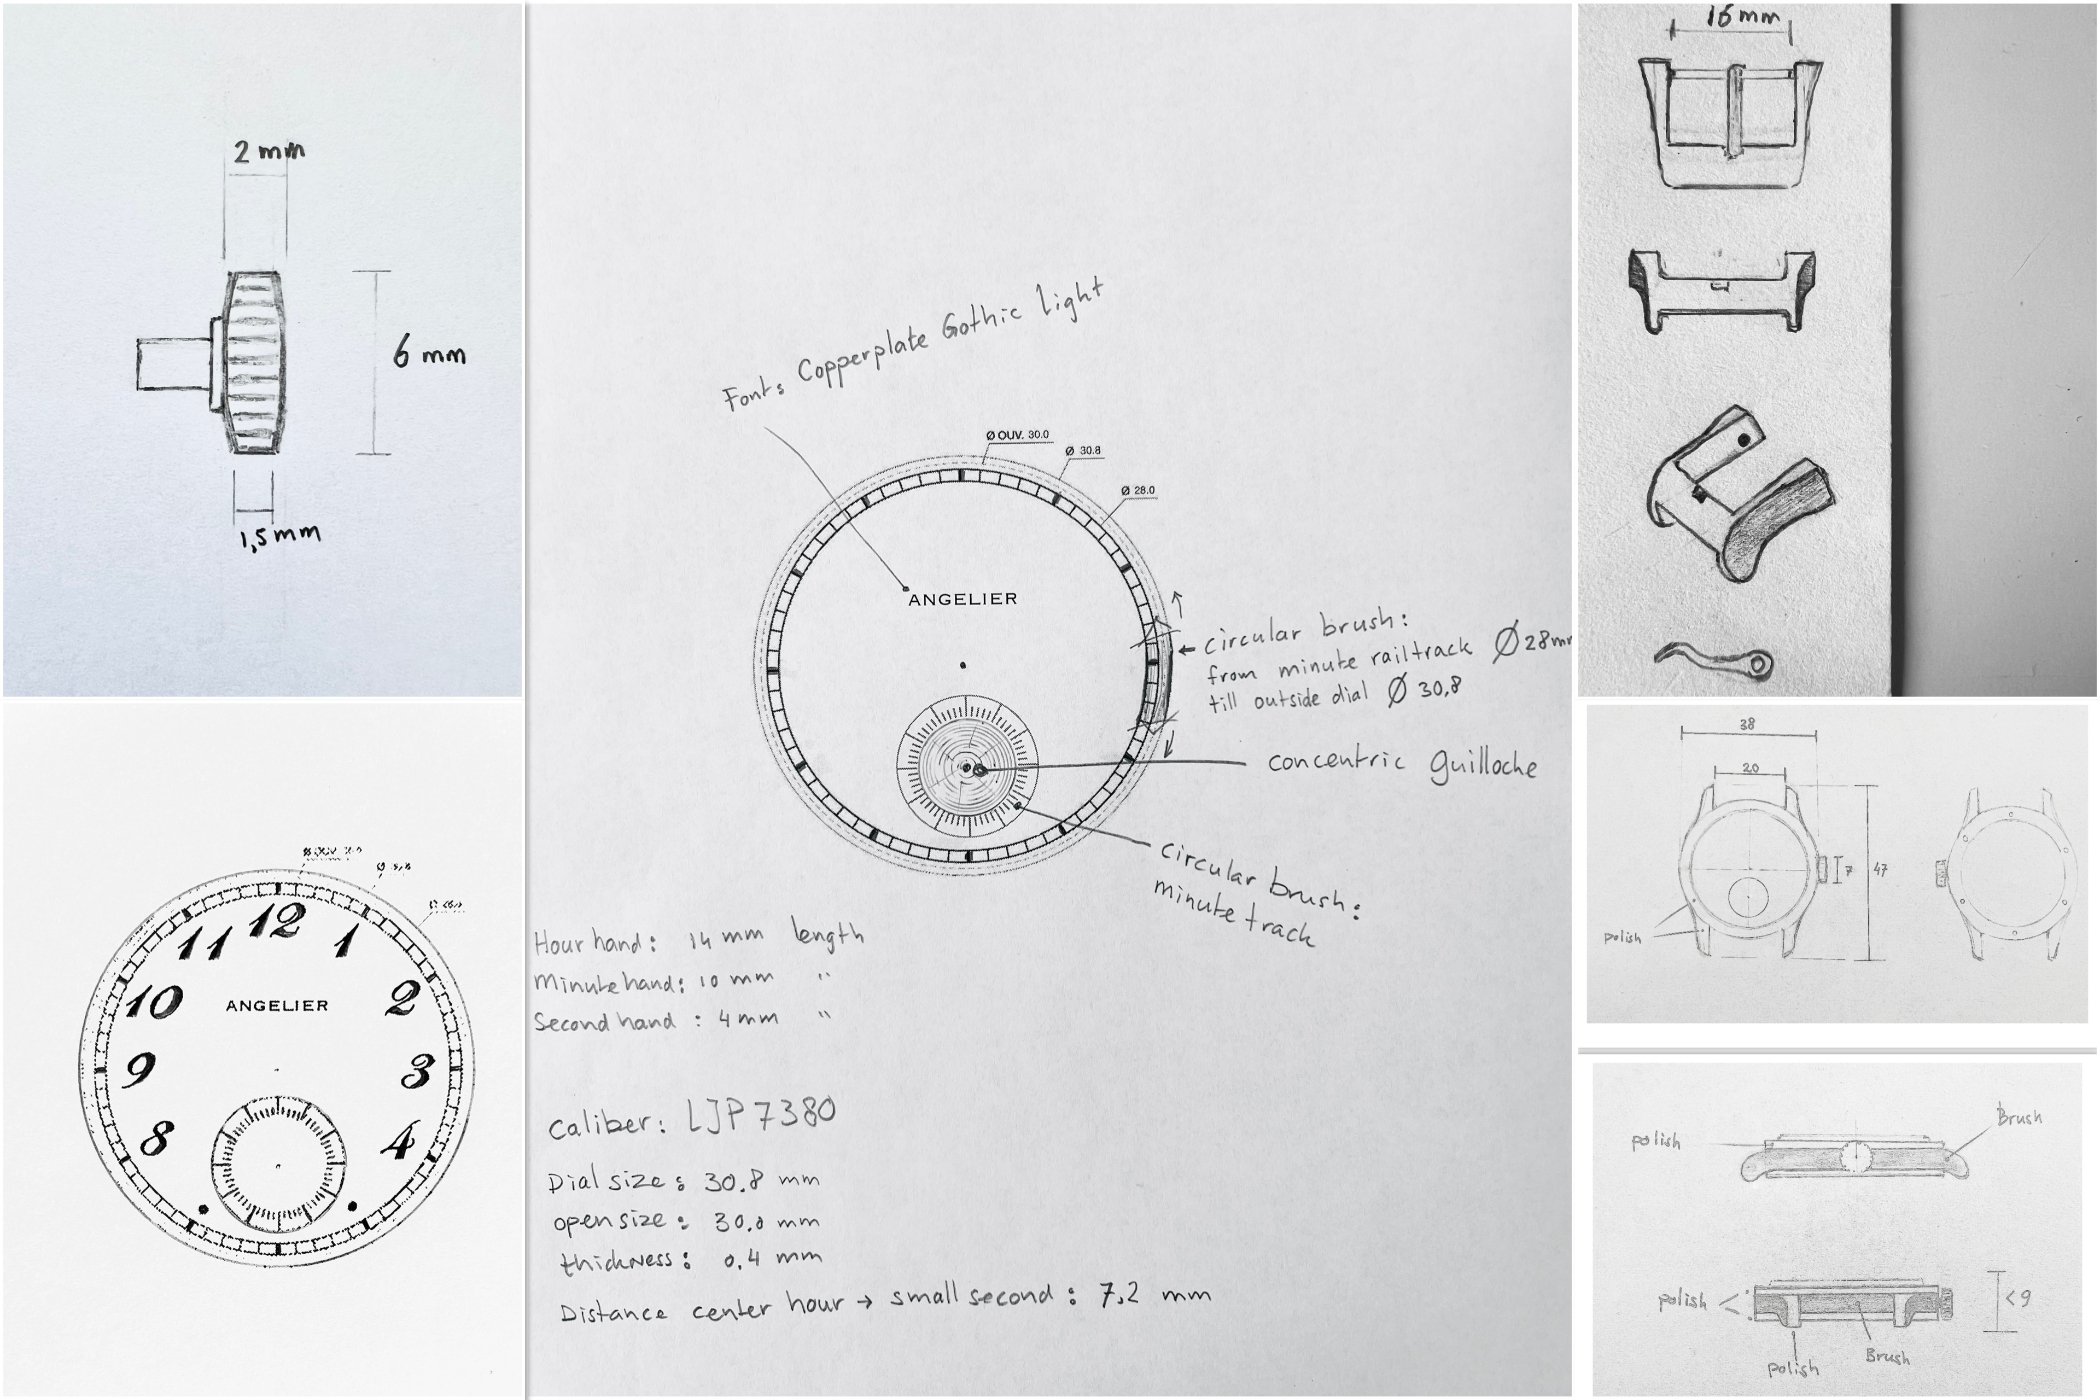 2 mm
6 mm
1,5mm
12
11
1
10
2
ANGELIER
9
3
8
4
Font: Copperplate Gothic Light
Ø OUV. 30.0
Ø 30.8
Ø 28.0
ANGELIER
circular brush:
from minute railtrack Ø 28mm
till outside dial Ø 30,8
concentric guilloche
circular brush:
minute track
Hour hand: 14 mm length
Minute hand: 10 mm "
Second hand : 4 mm "
Caliber: LJP 7380
Dial size: 30.8 mm
open size: 30.0 mm
thickness: 0.4 mm
Distance center hour → small second: 7,2 mm
16 mm
38
20
7
47
polish
polish
Brush
polish
<9
polish
Brush